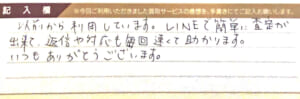 記入欄 ※今回ご利用いただきました買取サービスの感想を、手書きにてご記入お願いします。
以前から利用しています。LINEで簡単に査定が
出来て、返信や対応も毎回速くて助かります。
いつもありがとうございます。